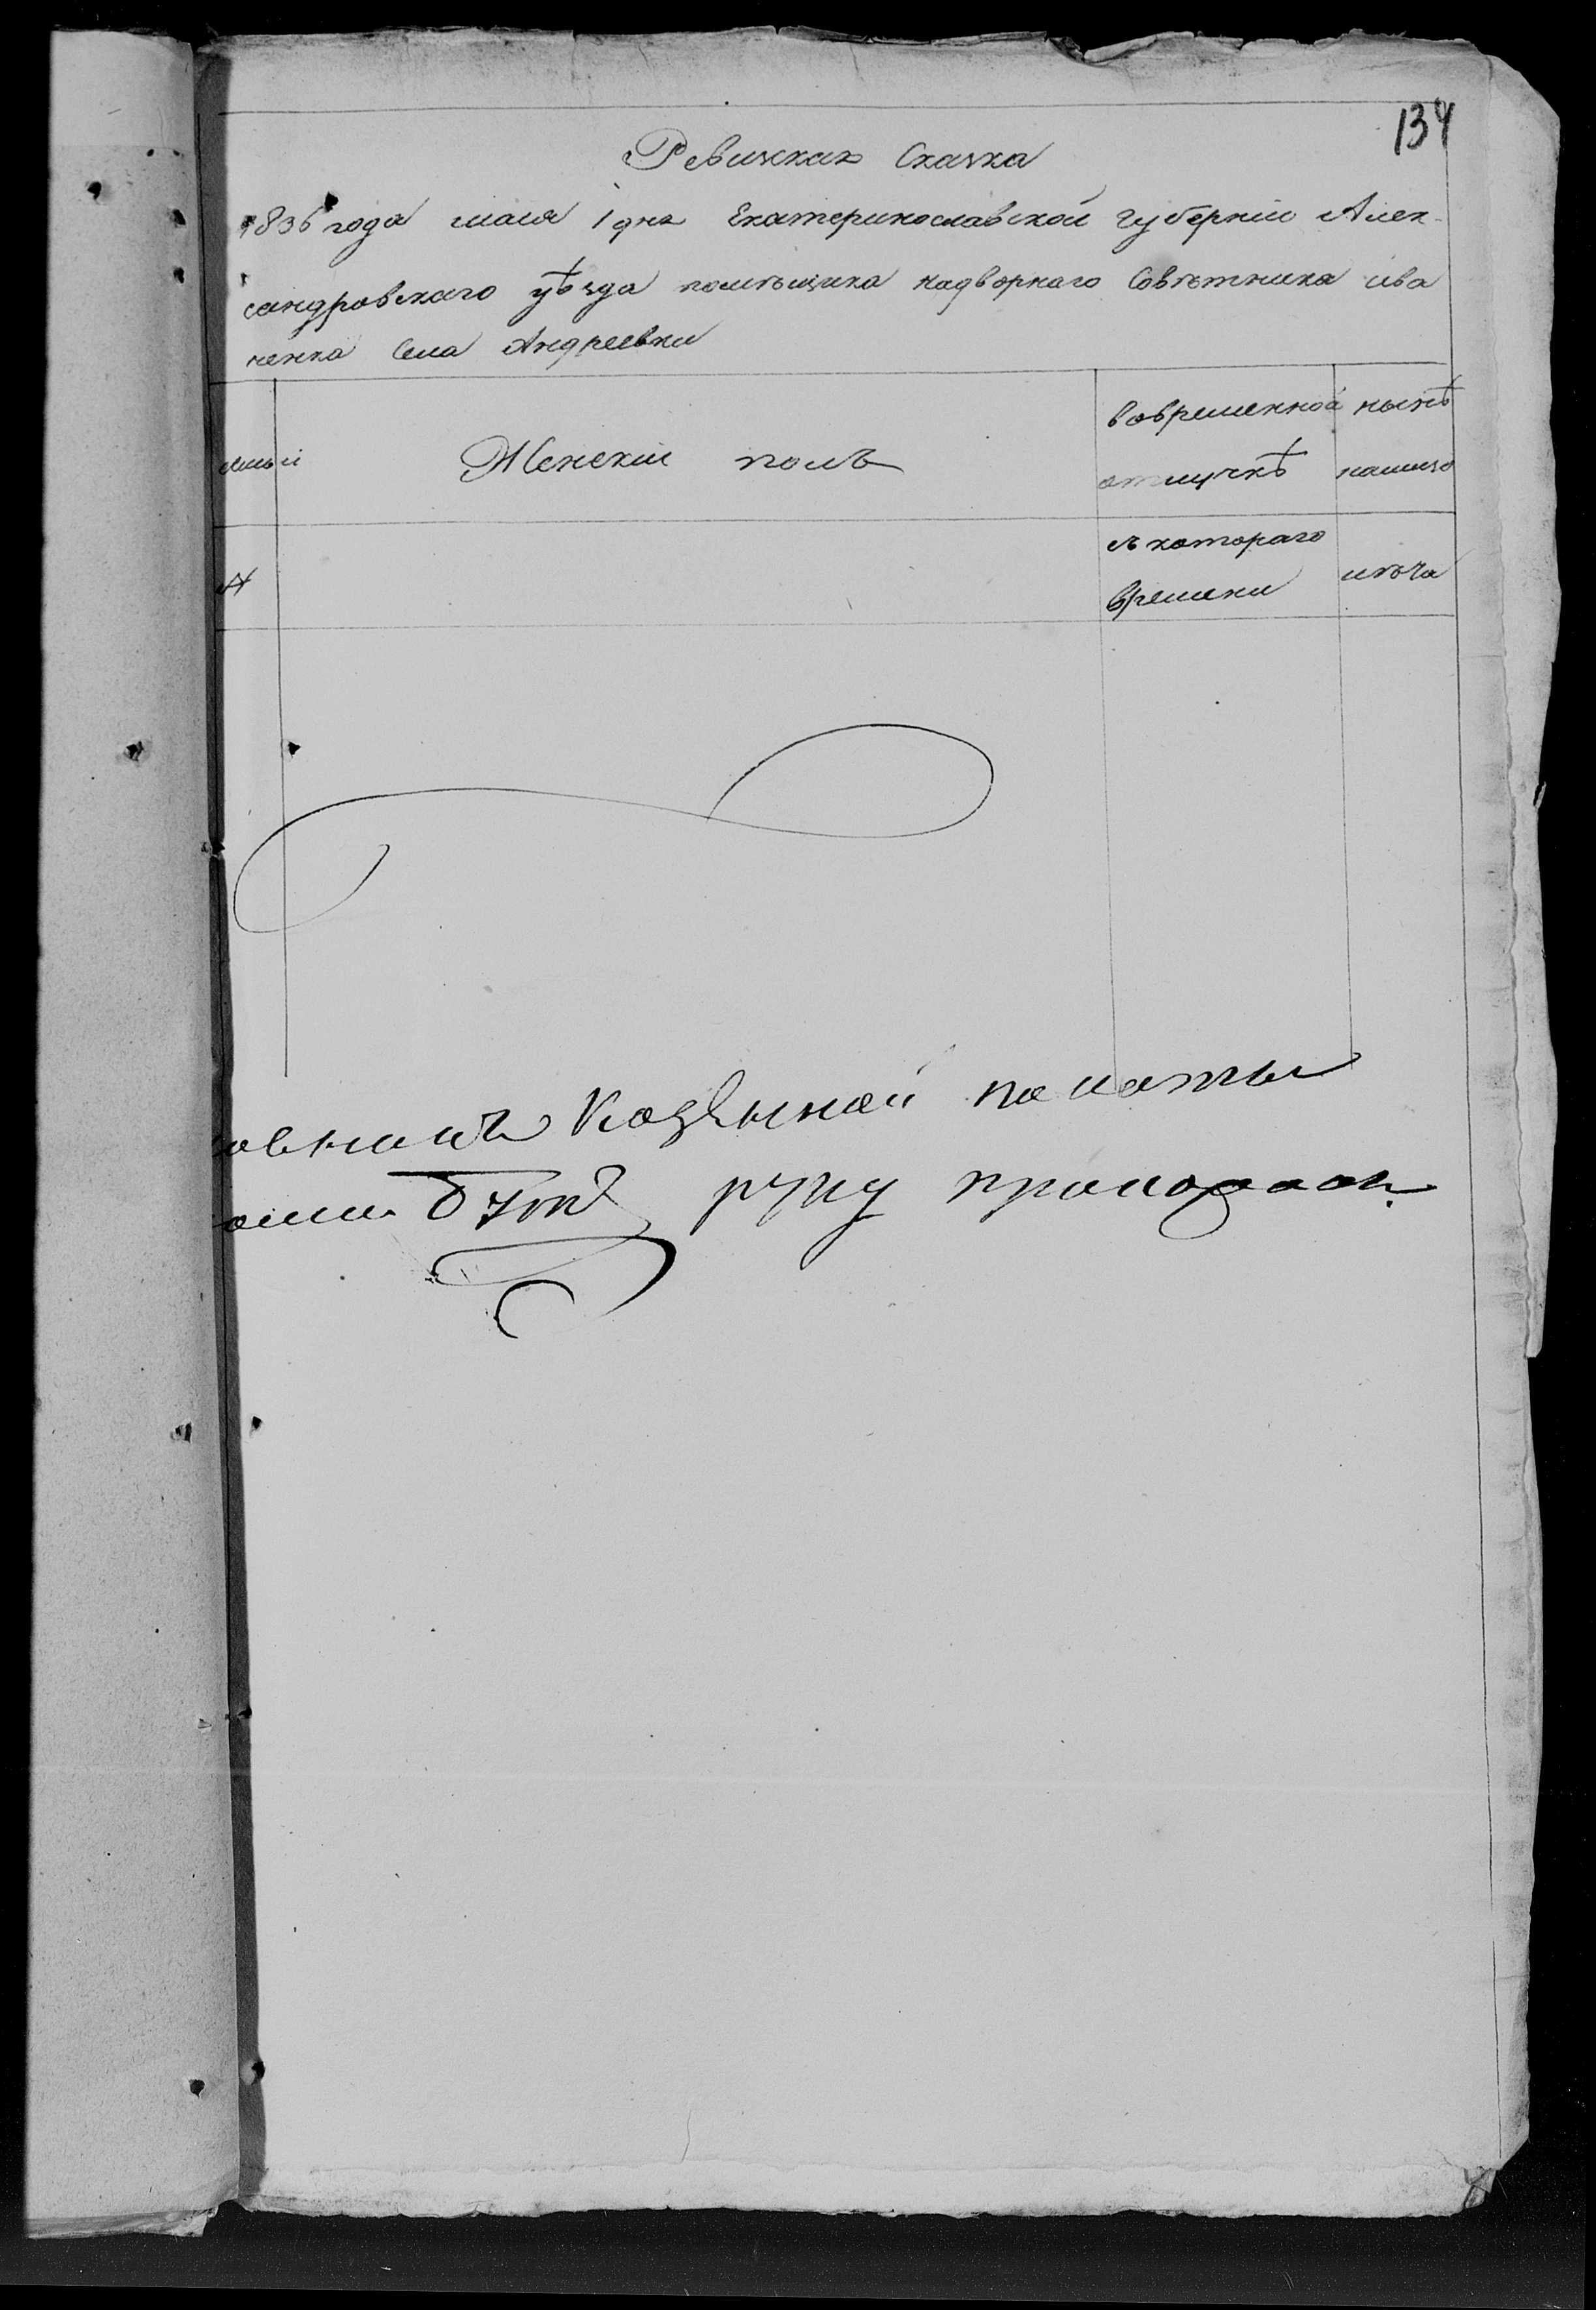 134
Ревизская Сказка
1836 года мая 1 дня Екатеринославской губернии Алек-
сандровскаго уѣзда помѣщика надворнаго Совѣтника ива
ненка Села Андреевки
Женскій полъ
во временной
отлучкѣ
нынѣ
на лицо
съ котораго
времени
лѣта
Казенной палаты
руку приложилъ